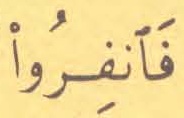 فَٱنفِرُوا۟